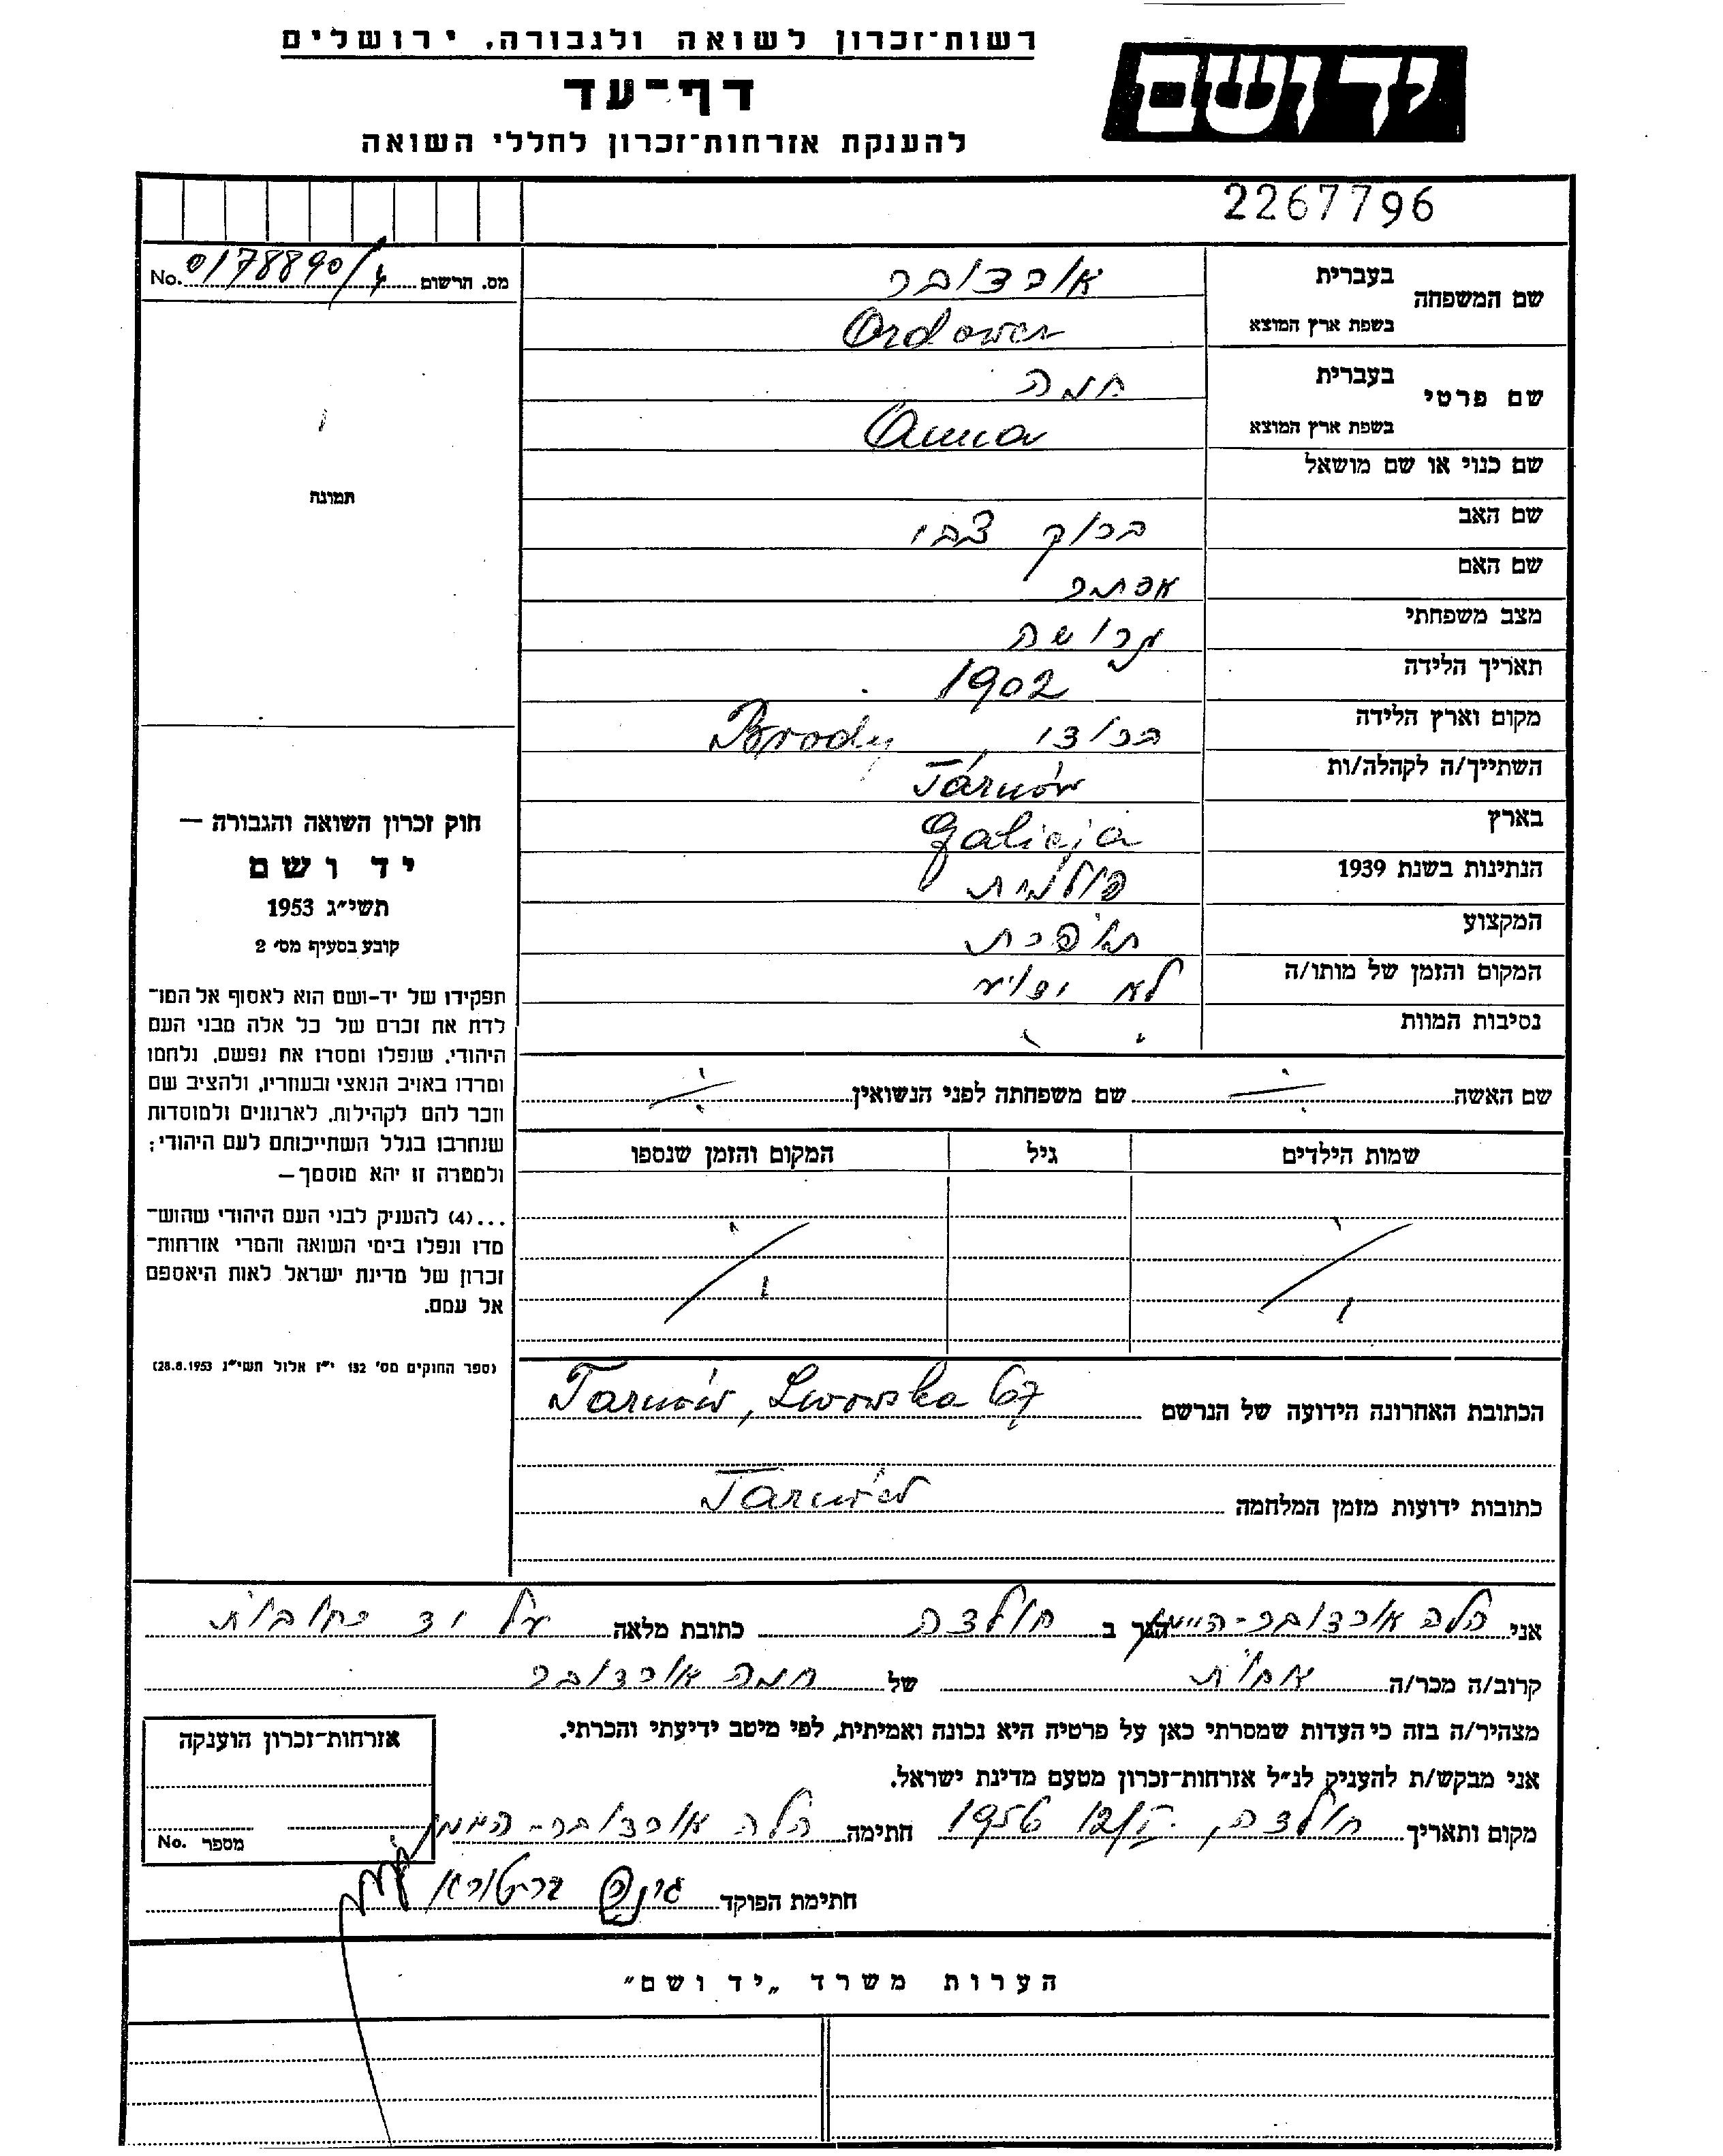 רשות־זכרון לשואה ולגבורה, ירושלים
יד ושם
דף־עד
להענקת אזרחות־זכרון לחללי השואה
2267796
מס. הרשום 0178890/ No.
שם המשפחה בעברית אורדובר
בשפת ארץ המוצא Ordower
שם פרטי בעברית חנה
בשפת ארץ המוצא Anna
שם כנוי או שם מושאל
שם האב ברוך צבי
שם האם אסתר
מצב משפחתי גרושה
תאריך הלידה 1902
מקום וארץ הלידה ברודי, Brody
השתייך/ה לקהלה/ות Tarnów
בארץ Galicja
הנתינות בשנת 1939 פולנית
המקצוע תופרת
המקום והזמן של מותו/ה לא ידוע
נסיבות המוות
תמונה
חוק זכרון השואה והגבורה —
יד ושם
תשי״ג 1953
קובע בסעיף מס׳ 2
תפקידו של יד-ושם הוא לאסוף אל המו־
לדת את זכרם של כל אלה מבני העם
היהודי, שנפלו ומסרו את נפשם, נלחמו
ומרדו באויב הנאצי ובעוזריו, ולהציב שם
וזכר להם לקהילות, לארגונים ולמוסדות
שנחרבו בגלל השתייכותם לעם היהודי;
ולמטרה זו יהא מוסמך—
...(4) להעניק לבני העם היהודי שהוש־
מדו ונפלו בימי השואה והמרי אזרחות־
זכרון של מדינת ישראל לאות היאספם
אל עמם.
(ספר החוקים מס׳ 132 י״ז אלול תשי״ג 28.8.1953)
שם האשה שם משפחתה לפני הנשואין
שמות הילדים גיל המקום והזמן שנספו
הכתובת האחרונה הידועה של הנרשם Tarnów, Lwowska 67
כתובות ידועות מזמן המלחמה Tarnów
אני הלה אורדובר- הגר ב חולדה כתובת מלאה על יד רחובות
קרוב/ה מכר/ה אחות של חנה אורדובר
מצהיר/ה בזה כי העדות שמסרתי כאן על פרטיה היא נכונה ואמיתית, לפי מיטב ידיעתי והכרתי.
אני מבקש/ת להעניק לנ״ל אזרחות־זכרון מטעם מדינת ישראל.
מקום ותאריך חולדה, 1956 חתימה הלה אורדובר-
חתימת הפוקד
אזרחות־זכרון הוענקה
מספר No.
הערות משרד „יד ושם״